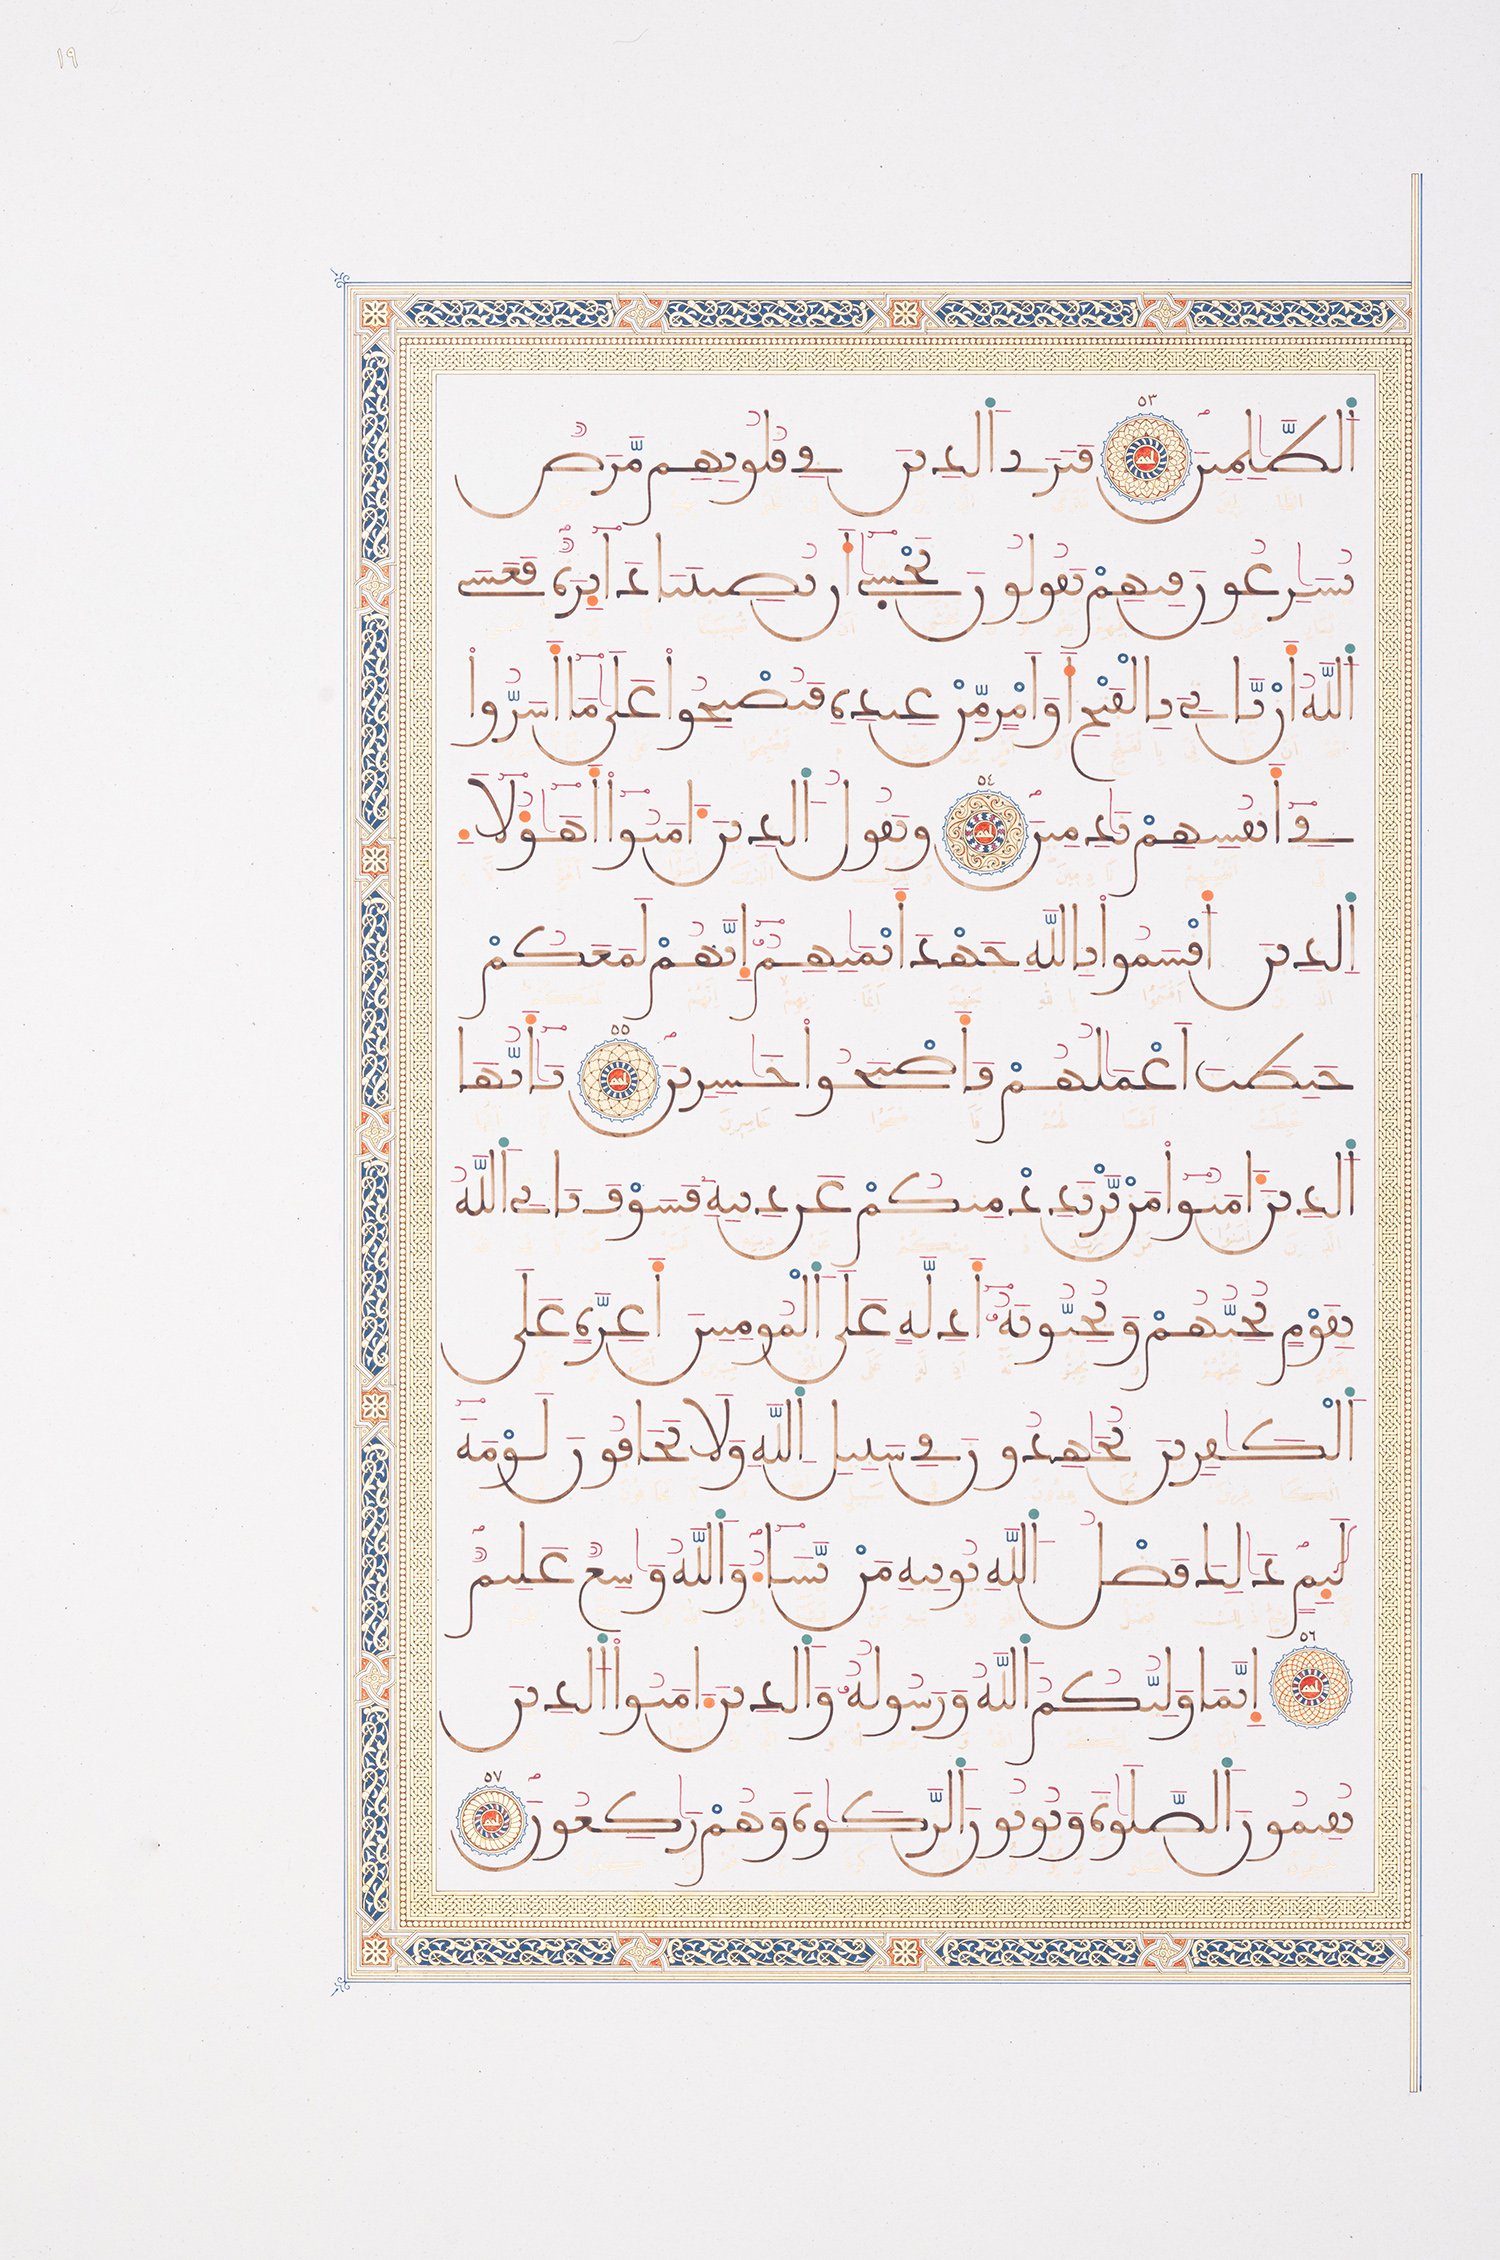 ١٩
الظَّالِمِينَ ٥٣ فَتَرَى الَّذِينَ فِي قُلُوبِهِم مَّرَضٌ
يُسَارِعُونَ فِيهِمْ يَقُولُونَ نَخْشَىٰ أَن تُصِيبَنَا دَائِرَةٌ فَعَسَى
اللَّهُ أَنْ يَأْتِيَ بِالْفَتْحِ أَوْ أَمْرٍ مِّنْ عِندِهِ فَيُصْبِحُوا عَلَىٰ مَا أَسَرُّوا
فِي أَنفُسِهِمْ نَادِمِينَ ٥٤ وَيَقُولُ الَّذِينَ آمَنُوا أَهَٰؤُلَاءِ
الَّذِينَ أَقْسَمُوا بِاللَّهِ جَهْدَ أَيْمَانِهِمْ إِنَّهُمْ لَمَعَكُمْ
حَبِطَتْ أَعْمَالُهُمْ فَأَصْبَحُوا خَاسِرِينَ ٥٥ يَا أَيُّهَا
الَّذِينَ آمَنُوا مَنْ يَّرْتَدِدْ مِنكُمْ عَن دِينِهِ فَسَوْفَ يَأْتِي اللَّهُ
بِقَوْمٍ يُحِبُّهُمْ وَيُحِبُّونَهُ أَذِلَّةٍ عَلَى الْمُومِنِينَ أَعِزَّةٍ عَلَى
الْكَافِرِينَ يُجَاهِدُونَ فِي سَبِيلِ اللَّهِ وَلَا يَخَافُونَ لَوْمَةَ
لَائِمٍ ذَٰلِكَ فَضْلُ اللَّهِ يُوتِيهِ مَنْ يَّشَاءُ وَاللَّهُ وَاسِعٌ عَلِيمٌ
٥٦ إِنَّمَا وَلِيُّكُمُ اللَّهُ وَرَسُولُهُ وَالَّذِينَ آمَنُوا الَّذِينَ
يُقِيمُونَ الصَّلَوٰةَ وَيُوتُونَ الزَّكَوٰةَ وَهُمْ رَاكِعُونَ ٥٧